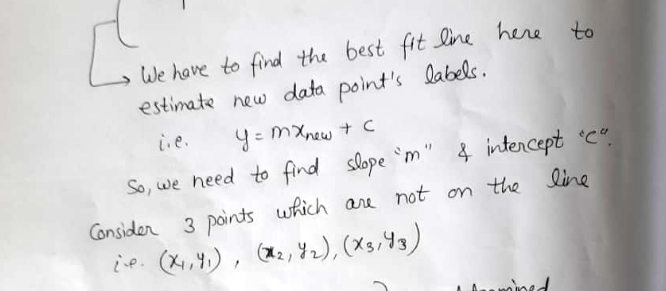 → We have to find the best fit line here to
estimate new data point's labels.
i.e. y = mxnew + c
So, we need to find slope "m" & intercept "c".
Consider 3 points which are not on the line
i.e. (x1, y1), (x2, y2), (x3, y3)